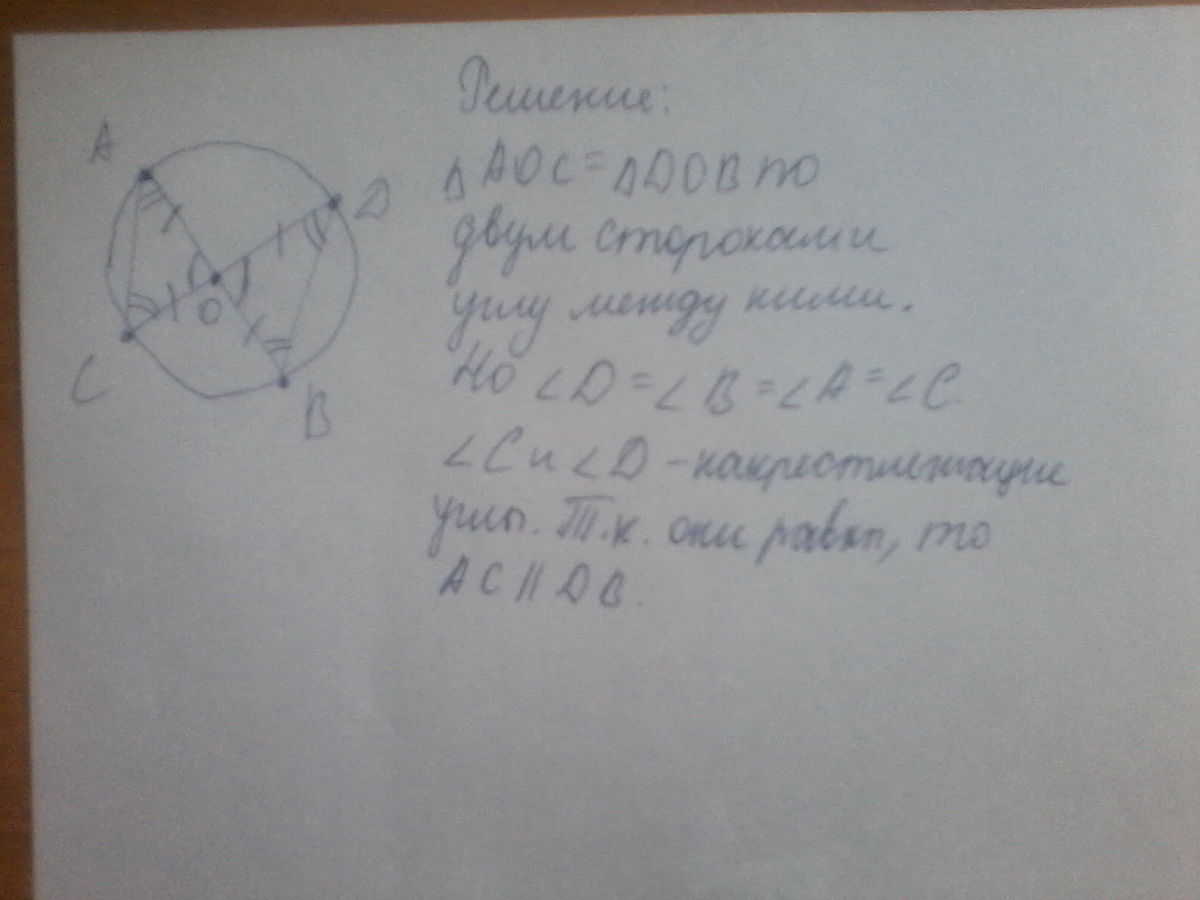 Решение:
A
D
O
C
B
△AOC=△DOB по
двум сторонами
углу между ними.
Но ∠D=∠B=∠A=∠C.
∠C и ∠D - накрестлежащие
углы. Т.к. они равны, то
AC||DB.